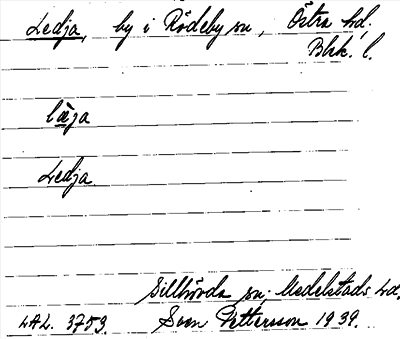 Ledja, by i Rödeby sn, Östra hd.
Blek. l.
læja
Ledja
Sillhövda sn, Medelstads hd.
LAL. 3753. Sven Pettersson 1939.